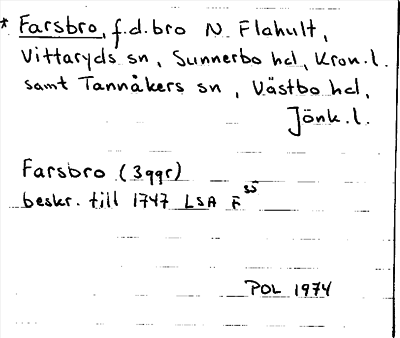 * Farsbro, f.d. bro N. Flahult,
Vittaryds sn, Sunnerbo hd, Kron.l.
samt Tannåkers sn, Västbo hd,
Jönk.l.
Farsbro (3ggr)
beskr. till 1747 LSA F 35
POL 1974